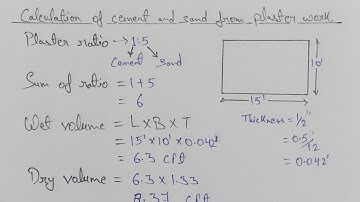 Calculation of cement and sand from plaster work
Plaster ratio → 1:5
Cement Sand
Sum of ratio = 1+5
= 6
Wet volume = L×B×T
= 15'×10'×0.042'
= 6.3 cft
Dry volume = 6.3×1.33
8.37 cft
10'
15'
Thickness = 1/2"
= 0.5"/12
= 0.042'